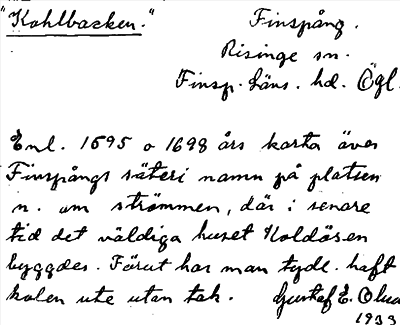 "Kohlbacken."
Finspång.
Risinge sn.
Finsp. Läns. hd. Ögl.
Enl. 1695 o 1698 års karta över
Finspångs säteri namn på platsen
n. om strömmen, där i senare
tid det väldiga huset Koldösen
byggdes. Förut har man tydl. haft
kolen ute utan tak. Gustaf E. Olua
1933